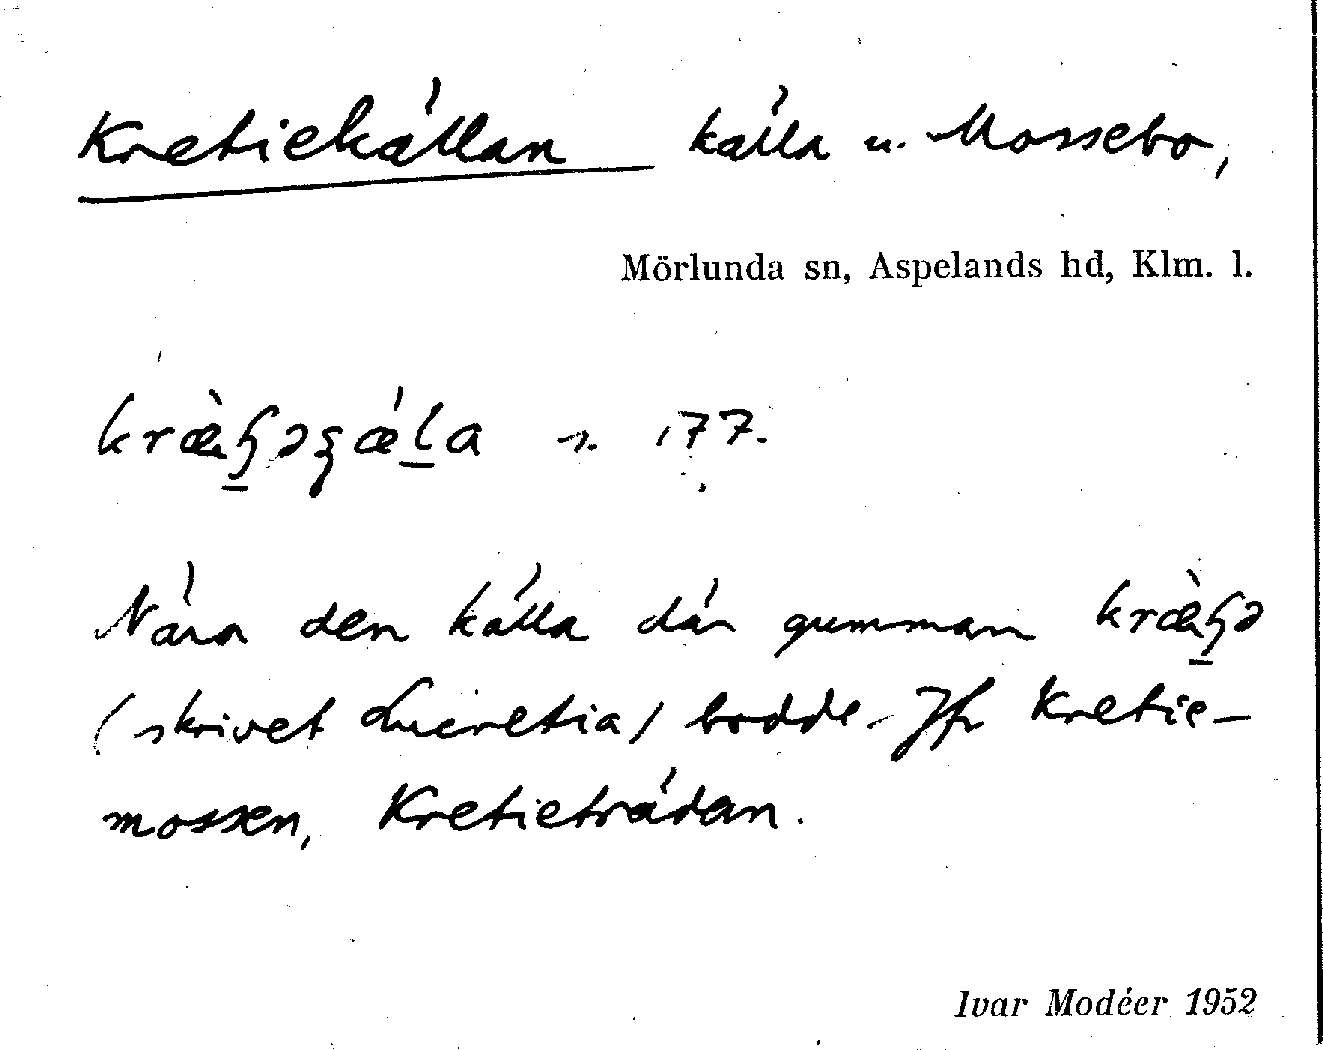 Kretiekällan källa u. Mossebo,
Mörlunda sn, Aspelands hd, Klm. l.
177.
Nära den källa där gumman
(skrivet Lucretia) bodde. Jfr Kretie-
mossen, Kretieträdan.
Ivar Modéer 1952